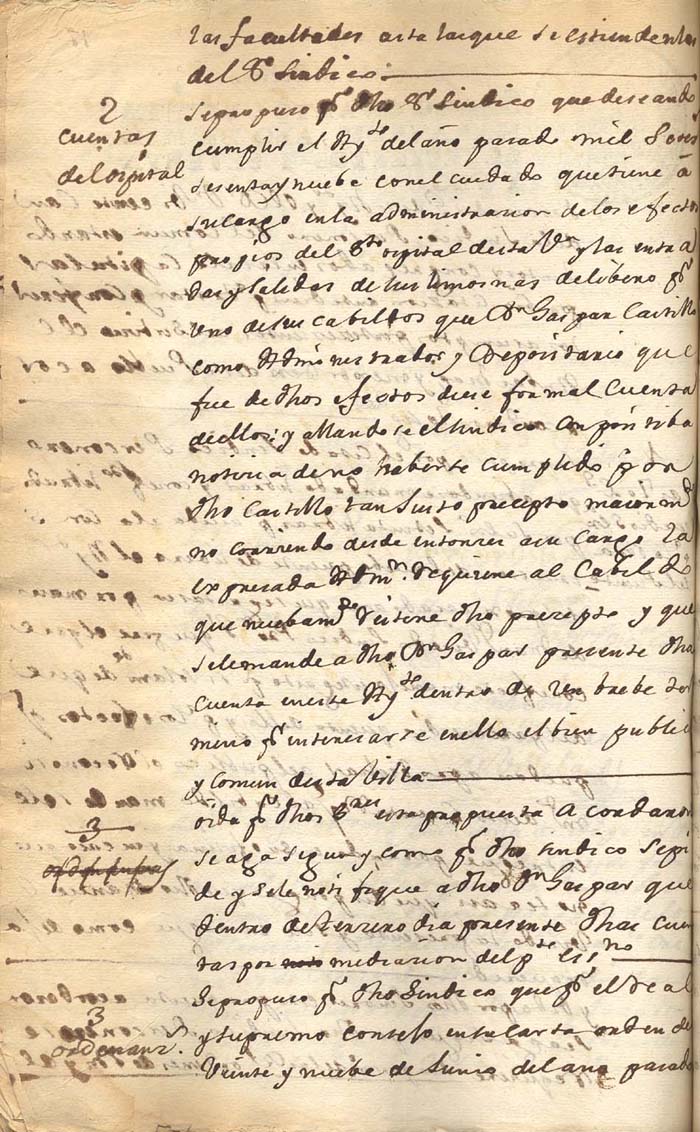 las facultades asta las que se estienden las
del Sr Sindico
2
cuentas
del ospital
Se propuso pr dho Sr Sindico que deseando
cumplir el Ayto del año pasado mil Setes
sesenta y nuebe con el cuidado que tiene á
su cargo en la administrazion de los efectos
propios del Sto ospital desta Va y las entra
das y salidas de sus limosnas delibero pr
uno de sus cabildos que Dn Gaspar Castillo
como Administrador y Depositario que
fue de dhos efectos diese formal cuenta
de ellos; y allandose el Sindico con positiba
noticia de no haberse cumplido por
dho Castillo tan Justo precepto maiormte
no corriendo desde entonzes a su cargo la
expresada Admn. Requiere al Cabildo
que nuebamte Reitere dho precepto y que
se le mande a dho Dn Gaspar presente dha
cuenta en este Ayto dentro de un brebe ter
mino pr interesarse en ello el bien public
y comun desta Villa
oida pr dhos Sres esta propuesta Acordaron
3
se aga segun y como pr dho sindico se pi
de y se le notifique a dho Dn Gaspar que
dentro de terzero dia presente dhas cuen
tas por mediazion del pte essno
Se propuso pr dho Sindico que pr el Real
3
ordenanzs
y supremo consejo en su carta orden de
Veinte y nuebe de Junio del año pasado